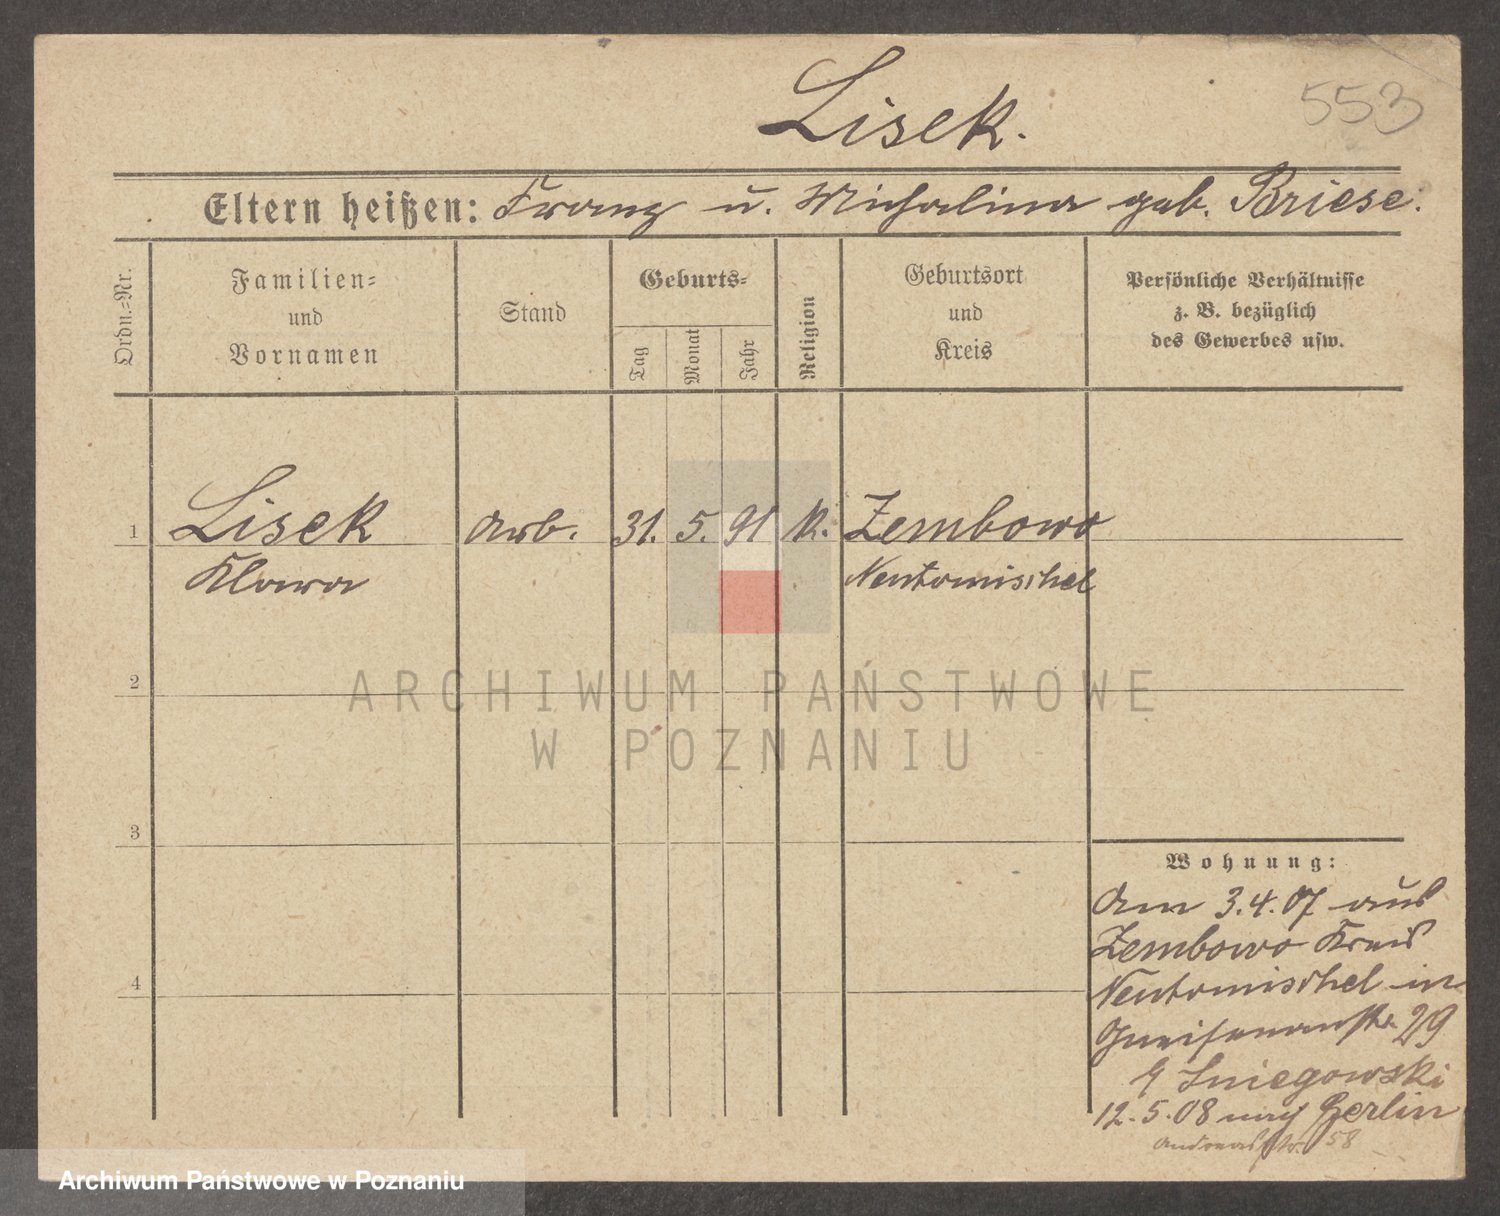 553
Lisek.
Eltern heißen: Franz u. Michalina geb. Briese.
Ordn.=Nr.
Familien=
und
Vornamen
Stand
Geburts=
Tag
Monat
Jahr
Religion
Geburtsort
und
Kreis
Persönliche Verhältnisse
z. B. bezüglich
des Gewerbes usw.
1 Lisek Arb. 31. 5. 91 k. Zembowo
Klara Neutomischel
2
ARCHIWUM PAŃSTWOWE
W POZNANIU
3
Wohnung:
Am 3.4.07 aus
Zembowo Kreis
4
Neutomischel in
Gneisenaustr. 29
Sniegowski
12.5.08 nach Berlin
Andreasstr. 58
Archiwum Państwowe w Poznaniu